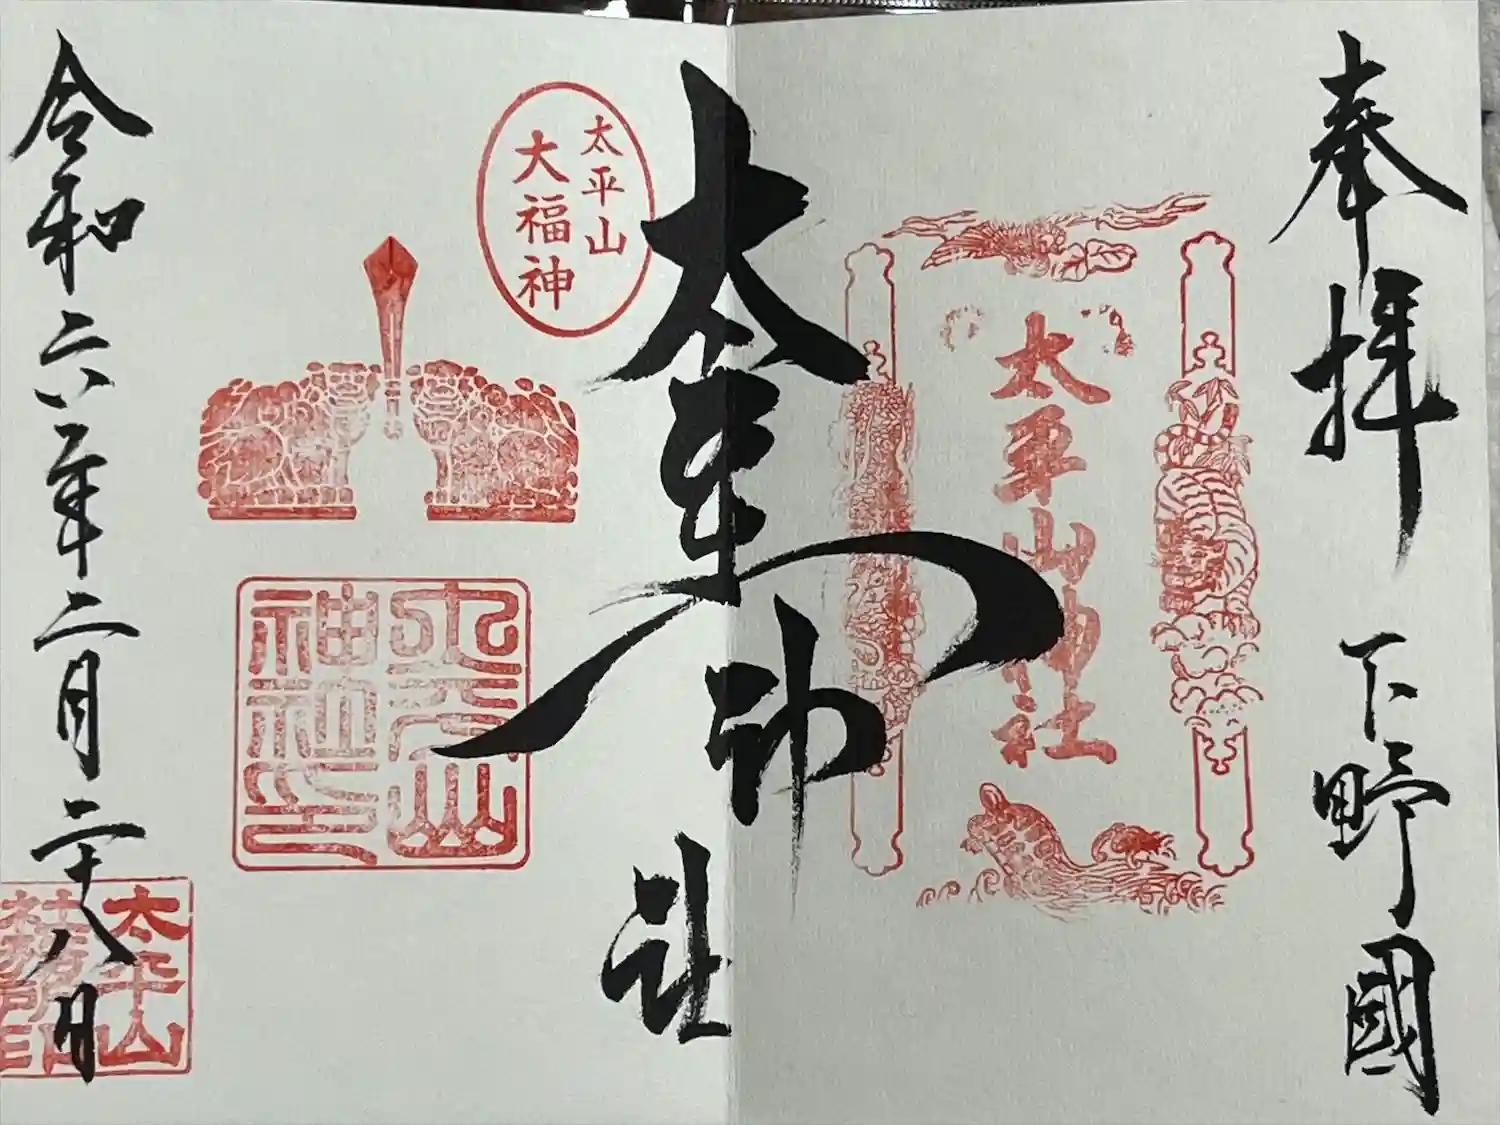 奉拝 下野國
太平山神社
太平山神社
太平山
大福神
太平山
神社之印
令和六年二月二十八日
太平山
社務所印